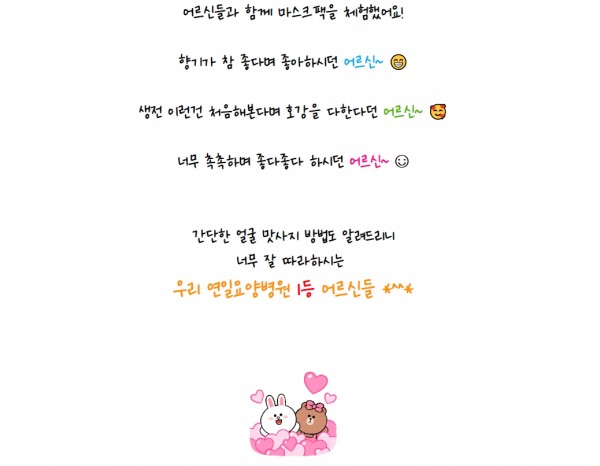 어르신들과 함께 마스크팩을 체험했어요!
향기가 참 좋다며 좋아하시던 어르신~ 😁
생전 이런건 처음해본다며 호강을 다한다던 어르신~ 🥰
너무 촉촉하며 좋다좋다 하시던 어르신~ ☺
간단한 얼굴 맛사지 방법도 알려드리니
너무 잘 따라하시는
우리 연일요양병원 1등 어르신들 *^^*